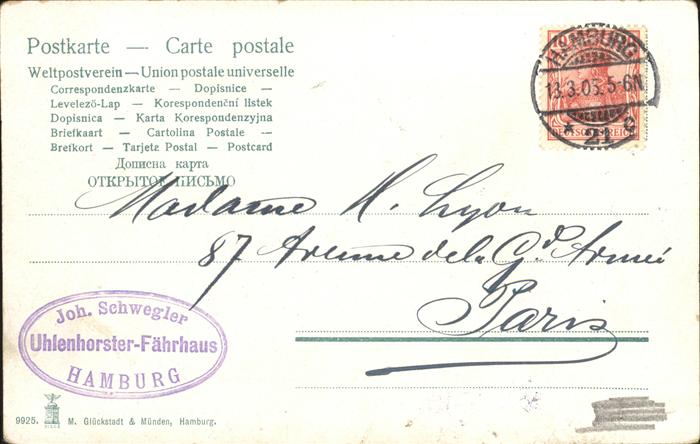 Postkarte — Carte postale
Weltpostverein — Union postale universelle
Correspondenzkarte — Dopisnice —
Levelező-Lap — Korespondenční lístek
Dopisnica — Karta Korespondenzyjna
Briefkaart — Cartolina Postale —
Brefkort — Tarjeta Postal — Postcard
Дописна карта
ОТКРЫТОЕ ПИСЬМО
HAMBURG
13.3.05.5-6N
* 21 c
DEUTSCHES REICH
Madame H. Lyon
87 Avenue de la Gde Armée
Paris
Joh. Schwegler
Uhlenhorster-Fährhaus
HAMBURG
9925. M. Glückstadt & Münden, Hamburg.